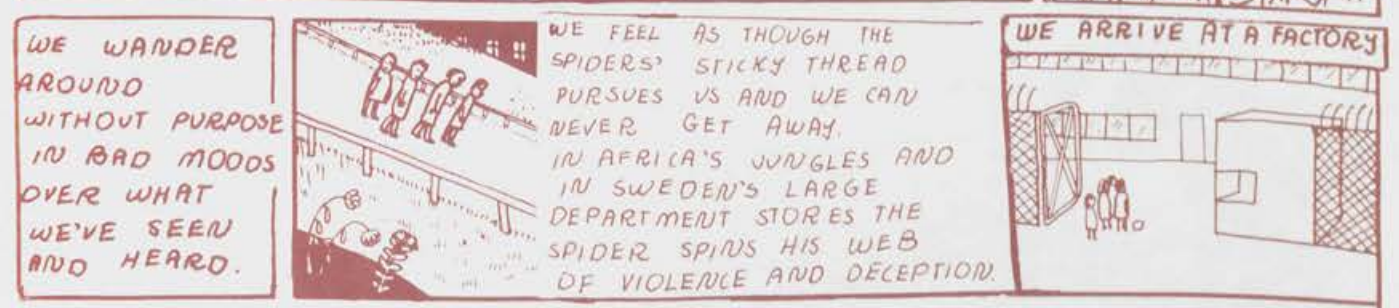 WE WANDER
AROUND
WITHOUT PURPOSE
IN BAD MOODS
OVER WHAT
WE'VE SEEN
AND HEARD.
WE FEEL AS THOUGH THE
SPIDERS' STICKY THREAD
PURSUES US AND WE CAN
NEVER GET AWAY.
IN AFRICA'S JUNGLES AND
IN SWEDEN'S LARGE
DEPARTMENT STORES THE
SPIDER SPINS HIS WEB
OF VIOLENCE AND DECEPTION.
WE ARRIVE AT A FACTORY